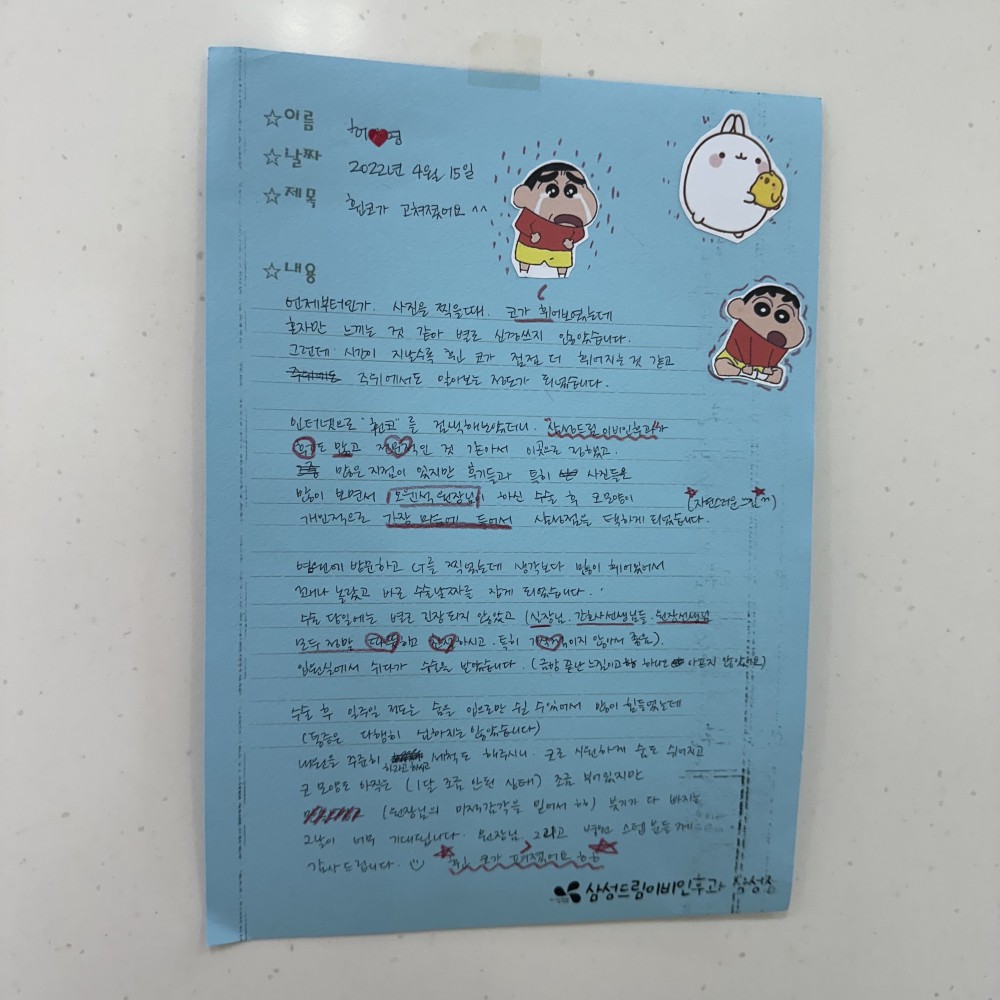 ☆이름 허♥영
☆날짜 2022년 4월 15일
☆제목 휜코가 고쳐졌어요 ^^
☆내용
언제부터인가. 사진을 찍을때. 코가 휘어보였는데
혼자만 느끼는 것 같아 별로 신경쓰지 않았습니다.
그런데 시간이 지날수록 휜 코가 점점 더 휘어지는 것 같고
주위에서도 알아보는 정도가 되었습니다.
인터넷으로 "휜코"를 검색해보았더니. "삼성드림이비인후과"가
많고 것 같아서 이곳으로 정했고.
많은 지점이 있지만 후기들과 특히 사진들을
많이 보면서 원장님이 하신 수술 후 코모양이 (자연스러운 느낌^^)
개인적으로 가장 마음에 들어서 삼성점을 택하게 되었습니다.
병원에 방문하고 CT를 찍었는데 생각보다 많이 휘어있어서
꼬나 놀랐고 바로 수술날짜를 잡게 되었습니다.
수술 당일에는 별로 긴장되지 않았고 (실장님, 간호사선생님들, 원장선생님
모두 정말 하시고. 특히 이지 않아서 좋음).
입원실에서 쉬다가 수술을 받았습니다. (금방 끝난 느낌이고 하나도 아프지 않았어요)
수술 후 일주일 정도는 숨을 입으로만 쉴 수있어서 많이 힘들었는데
(통증은 다행히 심하지는 않았습니다)
내원을 꾸준히 하라고 하셔서 세척도 해주시니. 코로 시원하게 숨도 쉬어지고
코 모양도 아직은 (1달 조금 안된 상태) 조금 부어있지만
(원장님의 미적감각을 믿어서 ㅎㅎ) 붓기가 다 빠지는
그날이 너무 기대됩니다. 원장님, 그리고 병원 스텝 분들께
감사드립니다. ☺ ★ 휜 코가 고쳐졌어요 ㅎㅎ ★
삼성드림이비인후과 삼성점